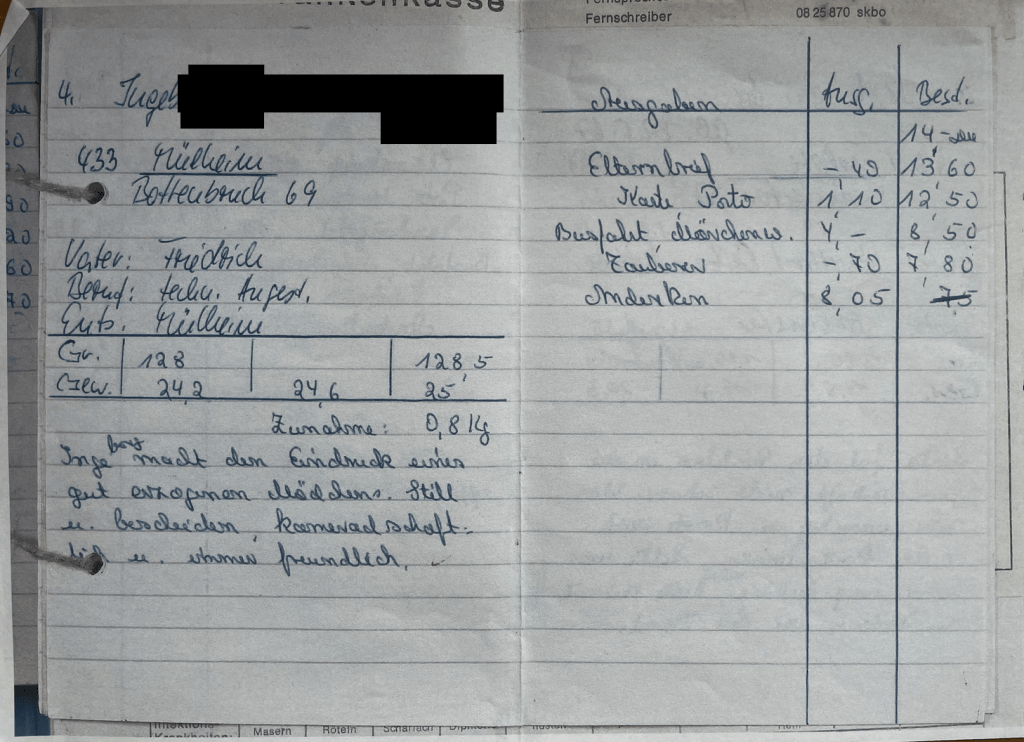 Krankenkasse
Fernsprecher
Fernschreiber 08 25 870 skbo
4. Ingeb
433 Mülheim
Bottenbruch 69
Vater: Friedrich
Beruf: techn. Angest.
Ents. Mülheim
Gr. 128 128,5
Gew. 24,2 24,6 25
Zunahme: 0,8 Kg
Ingeborg macht den Eindruck eines
gut erzogenen Mädchens. Still
u. bescheiden, kameradschaft-
lich u. immer freundlich.
Ausgaben Ausg. Best.
14,-
Elternbrief -,40 13,60
Karte, Porto 1,10 12,50
Busfahrt, Märchenw. 4,- 8,50
Zauberer -,70 7,80
Andenken 8,05 ,75
Infektions-
Krankheiten: Masern Röteln Scharlach